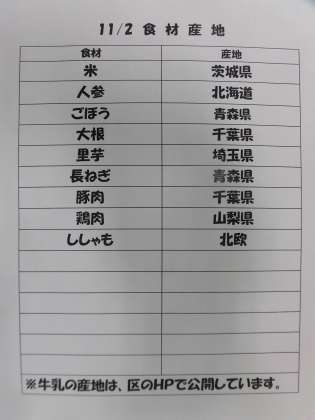 11/2 食材産地
食材 産地
米 茨城県
人参 北海道
ごぼう 青森県
大根 千葉県
里芋 埼玉県
長ねぎ 青森県
豚肉 千葉県
鶏肉 山梨県
ししゃも 北欧
※牛乳の産地は、区のHPで公開しています。